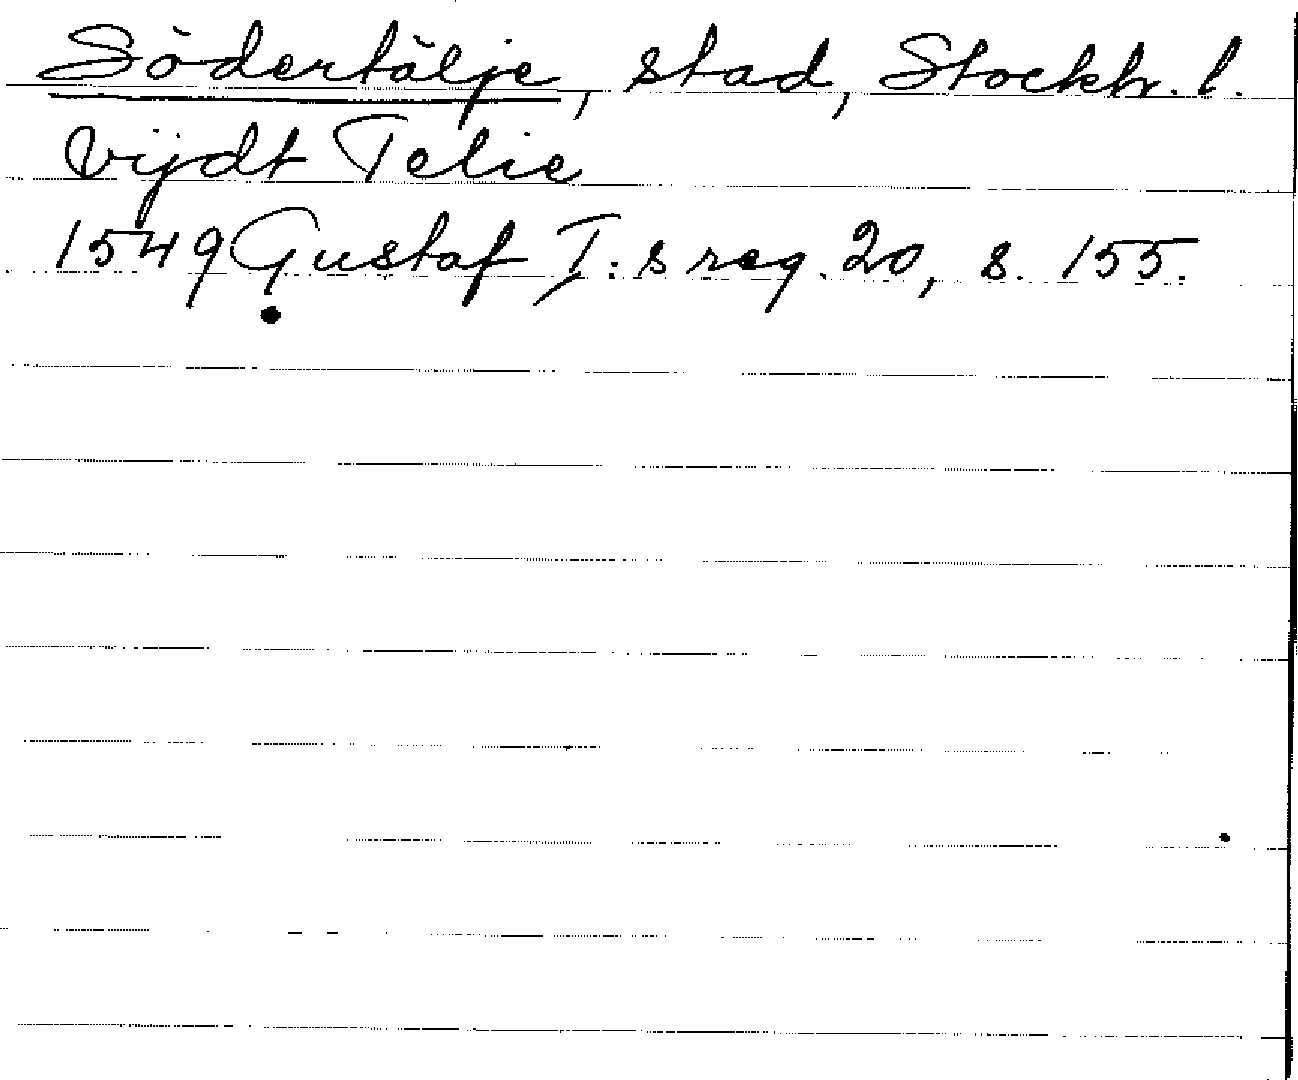 Södertälje, stad, Stockh. l.
vijdt Telie
1549 Gustaf I:s reg. 20, s. 155.